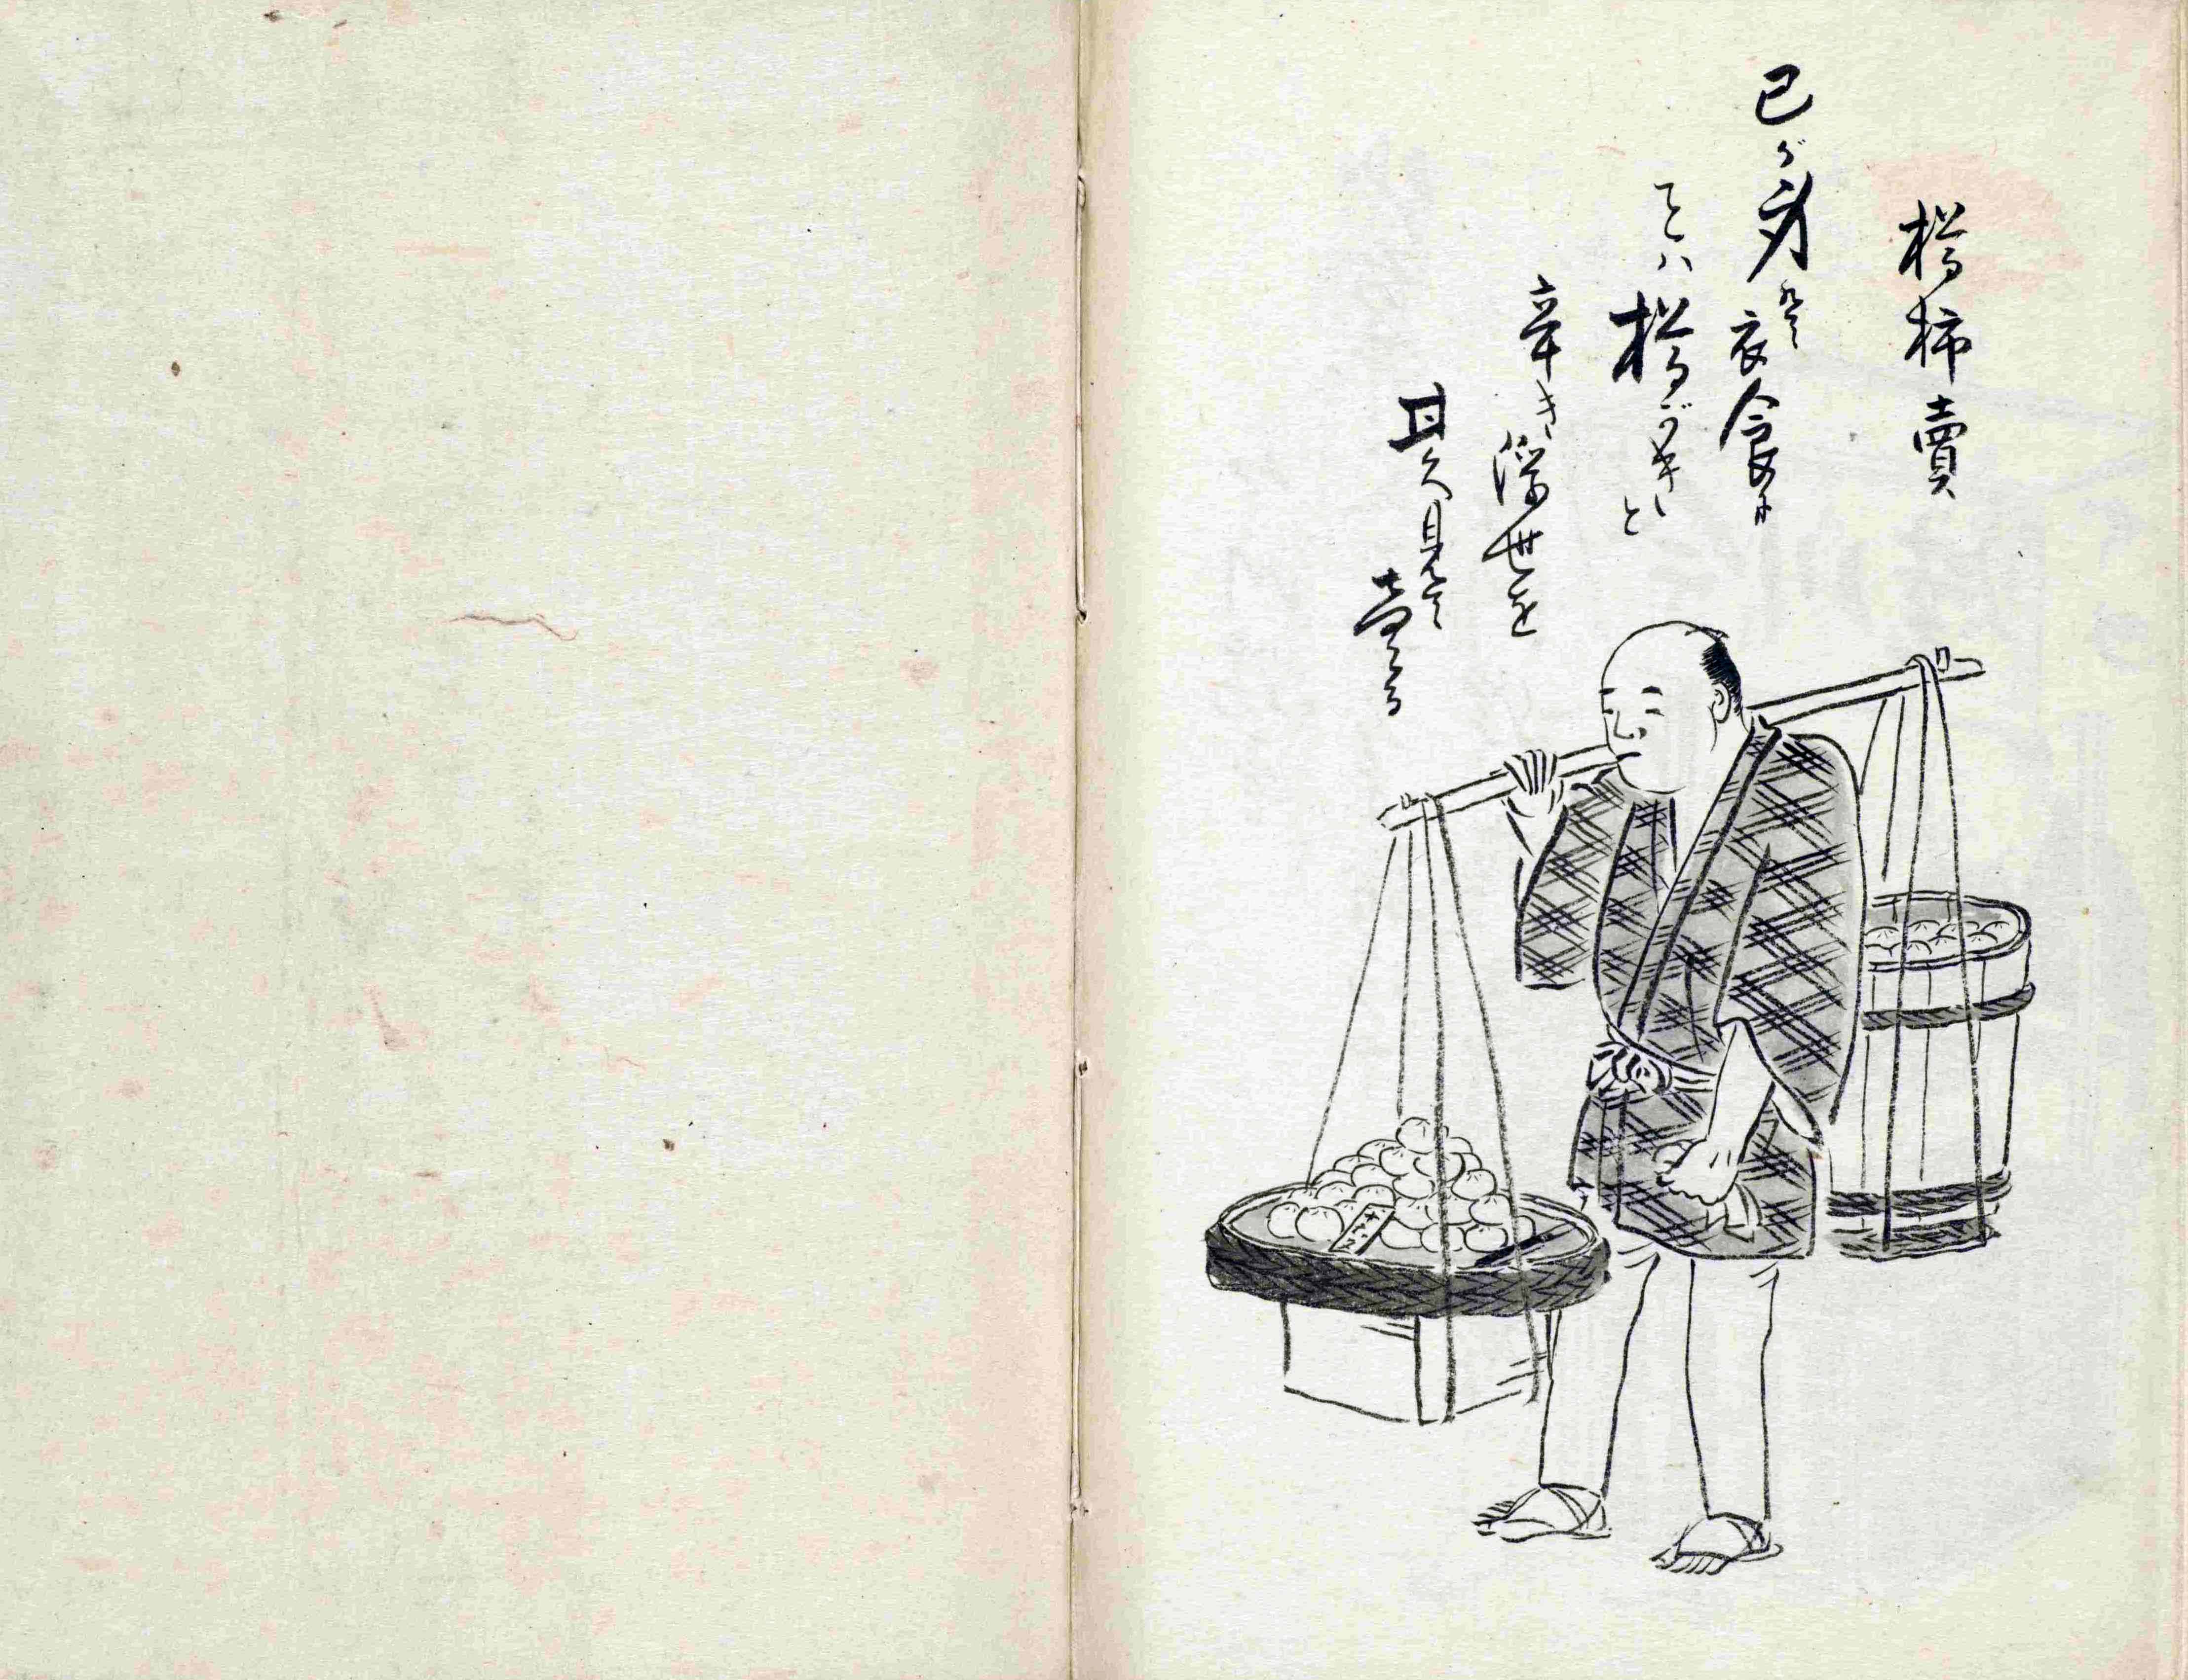 樽柿賣
己が身 衣食
ことハ樽がきと
辛き浮世を
甘く見て売る